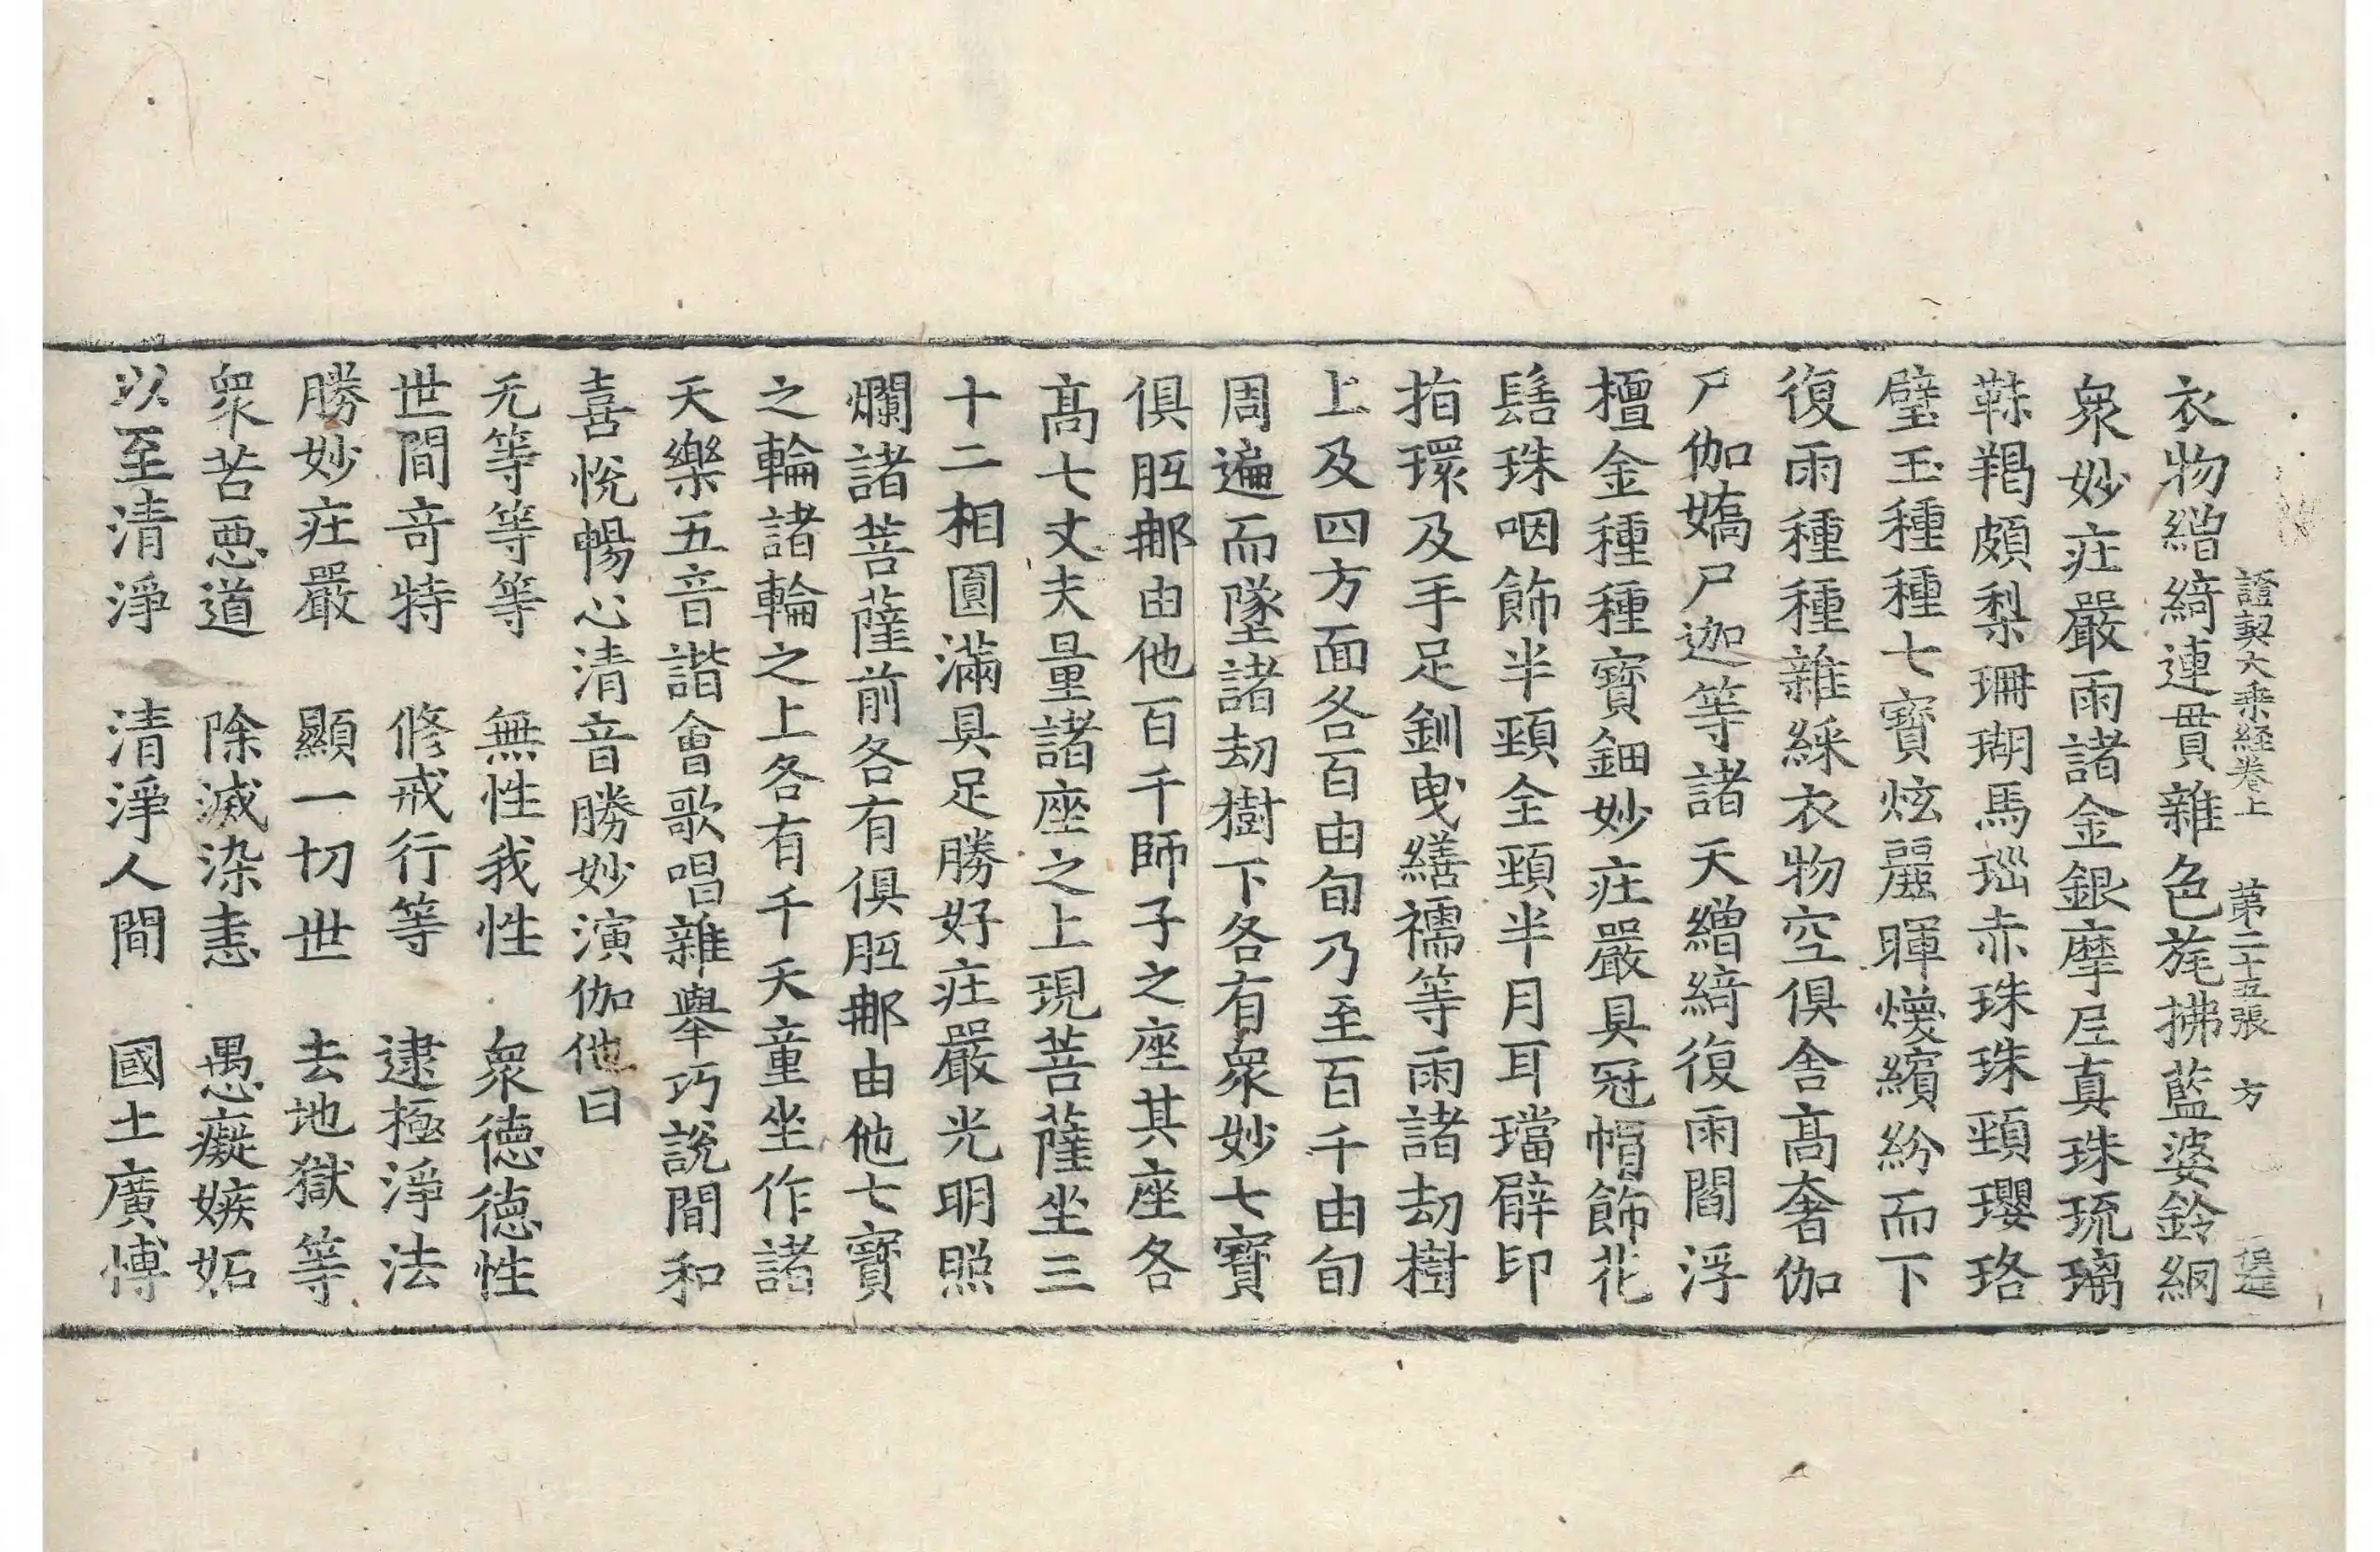 證契大乘経卷上　第二十五張　方
衣物繒綺連貫雜色旄拂藍婆鈴網
衆妙庄嚴雨諸金銀摩𡰱真珠琉璃
靺羯頗梨珊瑚馬瑙赤珠珠頸瓔珞
璧玉種種七寶炫麗暉煥繽紛而下
復雨種種雜綵衣物空俱舍高奢伽
尸伽嬌尸迦等諸天繒綺復雨閻浮
檀金種種寶鈿妙庄嚴具冠帽飾花
髻珠咽飾半頸全頸半月耳璫臂印
指環及手足釧曳繕襦等雨諸劫樹
上及四方面各百由旬乃至百千由旬
周遍而墜諸劫樹下各有衆妙七寶
俱胝那由他百千師子之座其座各
髙七丈夫量諸座之上現菩薩坐三
十二相圓滿具足勝好庄嚴光明照
爛諸菩薩前各有俱胝那由他七寶
之輪諸輪之上各有千天童坐作諸
天樂五音諧會歌唱雜舉巧說間和
喜悅暢心清音勝妙演伽他曰
无等等等　無性我性　衆德德性
世間竒特　修戒行等　逮極淨法
勝妙庄嚴　顯一切世　去地獄等
衆苦惡道　除滅染恚　愚癡嫉妬
以至清淨　清淨人間　國土廣博